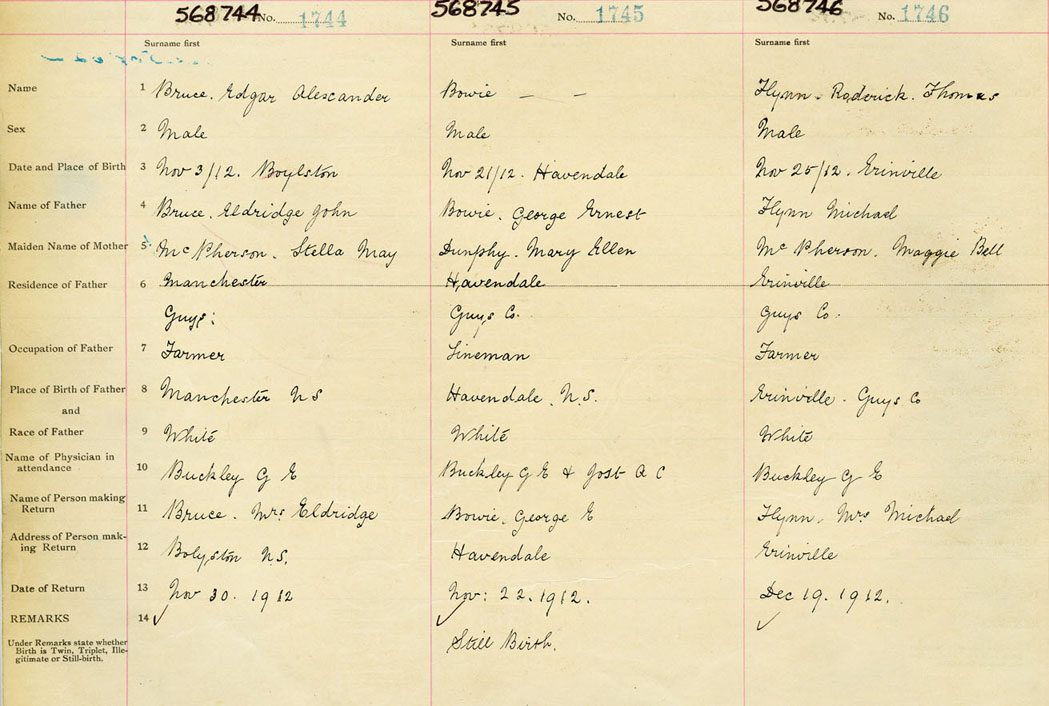 568744 No. 1744 568745 No. 1745 568746 No. 1746
Surname first Surname first Surname first
Name 1 Bruce. Edgar Alexcander Bowie — — Flynn. Roderick. Thomas
Sex 2 Male Male Male
Date and Place of Birth 3 Nov 3/12. Boylston Nov 21/12. Havendale Nov 25/12. Erinville
Name of Father 4 Bruce. Eldridge John Bowie. George Ernest Flynn Michael
Maiden Name of Mother 5 McPherson. Stella May Dunphy. Mary Ellen McPherson. Maggie Bell
Residence of Father 6 Manchester Havendale Erinville
Guys: Guys Co. Guys Co.
Occupation of Father 7 Farmer Lineman Farmer
Place of Birth of Father 8 Manchester NS Havendale. N.S. Erinville. Guys Co
and
Race of Father 9 White White White
Name of Physician in
attendance 10 Buckley G E Buckley G E & Jost A C Buckley G E
Name of Person making
Return 11 Bruce. Mrs Eldridge Bowie. George E Flynn. Mrs Michael
Address of Person mak-
ing Return 12 Bolyston N.S. Havendale Erinville
Date of Return 13 Nov 30. 1912 Nov: 22. 1912. Dec 19. 1912.
REMARKS 14
Under Remarks state whether
Birth is Twin, Triplet, Ille-
gitimate or Still-birth.
Still Birth.